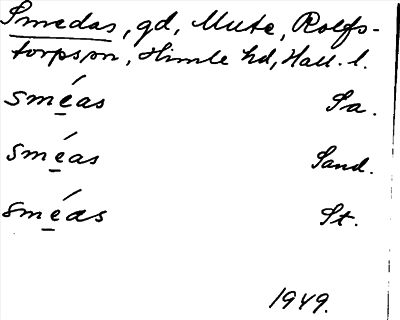 Smedas, gd, Mute, Rolfs-
torps sn, Himle hd, Hall. l.
smé̲as Sa.
smé̲as Sand.
smé̲as St.
1949.